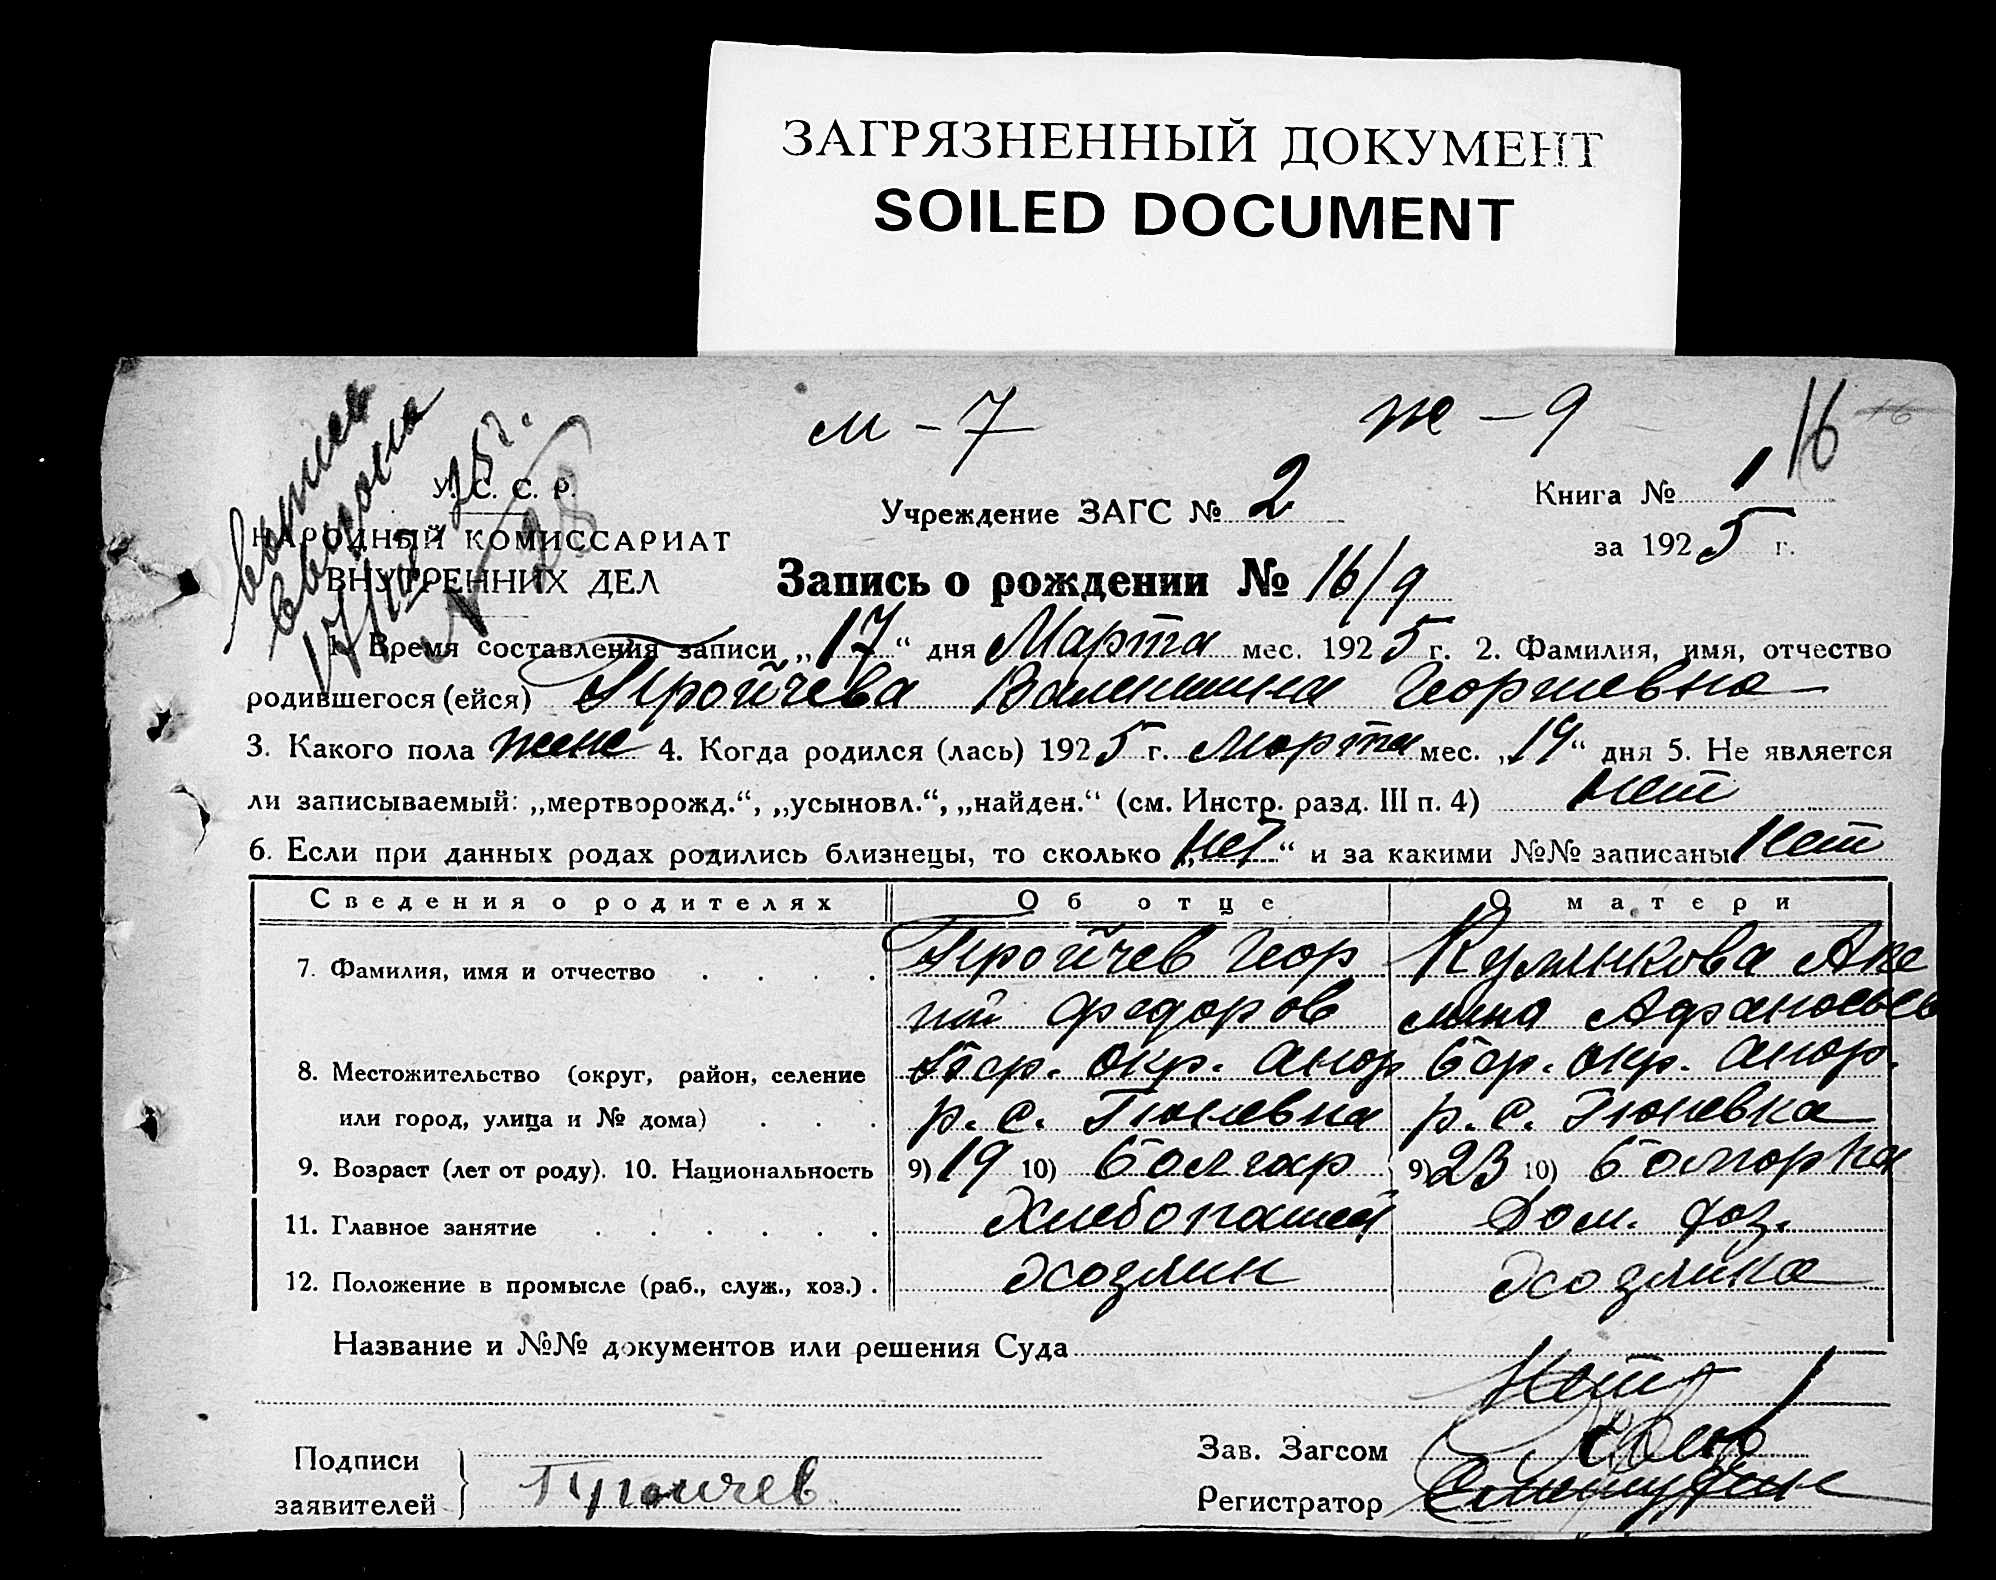 ЗАГРЯЗНЕННЫЙ ДОКУМЕНТ
SOILED DOCUMENT
м - 7 ж - 9 16
У. С. С. Р.
НАРОДНЫЙ КОМИССАРИАТ
ВНУТРЕННИХ ДЕЛ
Учреждение ЗАГС № 2
Книга № 1
за 1925 г.
Запись о рождении № 16/9
1. Время составления записи „17“ дня Марта мес. 1925 г. 2. Фамилия, имя, отчество
родившегося (ейся) Тройчева Валентина Георгиевна
3. Какого пола жене 4. Когда родился (лась) 1925 г. Марта мес. „14“ дня 5. Не является
ли записываемый: „мертворожд.“, „усыновл.“, „найден.“ (см. Инстр. разд. III п. 4) нет
6. Если при данных родах родились близнецы, то сколько „нет“ и за какими №№ записаны Нет
Сведения о родителях Об отце О матери
7. Фамилия, имя и отчество . . . . Тройчев Геор Куликова Аке
гий Федоров лина Афанасьев
8. Местожительство (округ, район, селение окр. Анор Бер. окр. Анор.
или город, улица и № дома) . . . р. с. Гюневка р. с. Гюневка
9. Возраст (лет от роду). 10. Национальность 9) 19 10) болгар 9) 23 10) болгарка
11. Главное занятие . . . . . . Хлебопашец Дом. хоз.
12. Положение в промысле (раб., служ., хоз.) . Хозяин Хозяйка
Название и №№ документов или решения Суда
Нет
Подписи
заявителей } Тройчев
Зав. Загсом
Регистратор